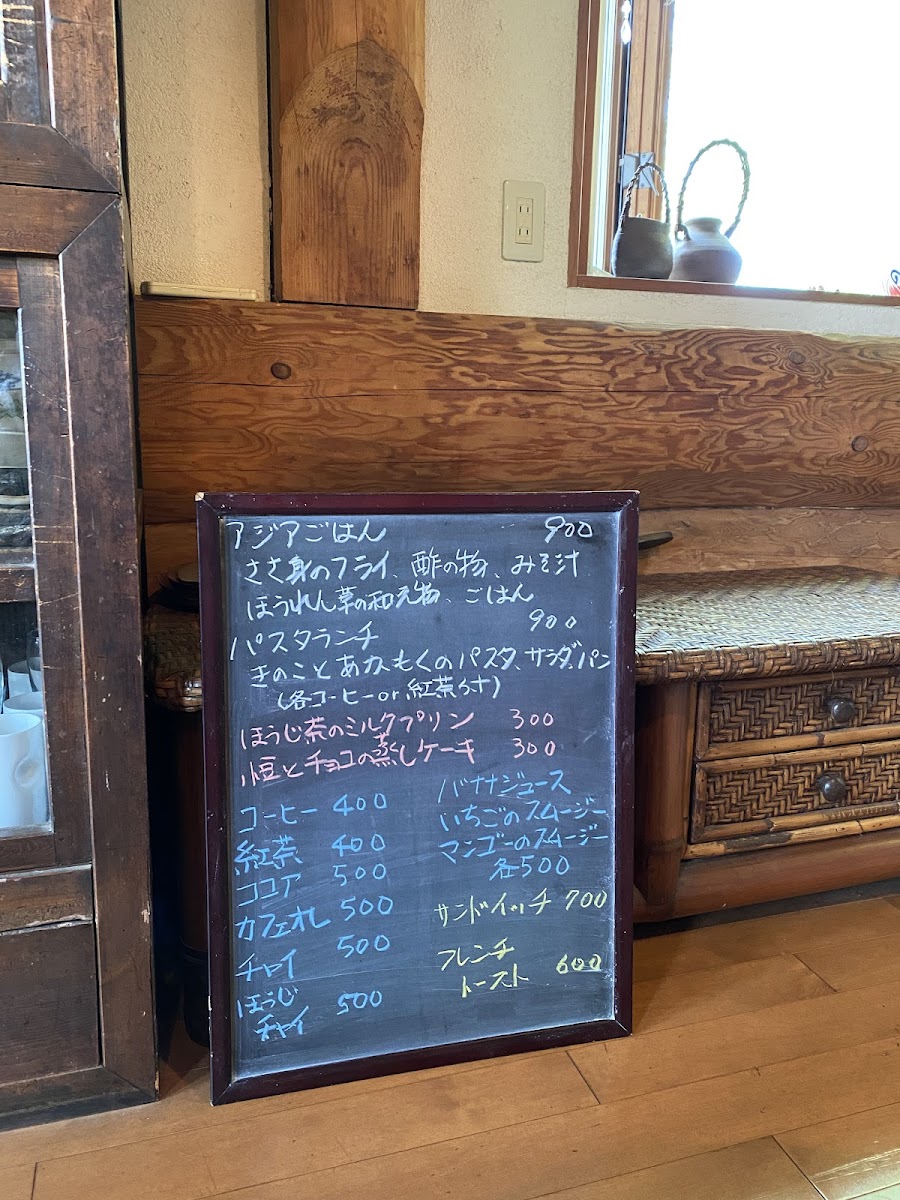 アジアごはん 900
ささ身のフライ、酢の物、みそ汁
ほうれん草の和え物、ごはん
パスタランチ 900
きのことあかもくのパスタ、サラダ、パン
(各コーヒーor紅茶付)
ほうじ茶のミルクプリン 300
小豆とチョコの蒸しケーキ 300
コーヒー 400
紅茶 400
ココア 500
カフェオレ 500
チャイ 500
ほうじ
チャイ 500
バナナジュース
いちごのスムージー
マンゴーのスムージー
各500
サンドイッチ 700
フレンチ
トースト 600